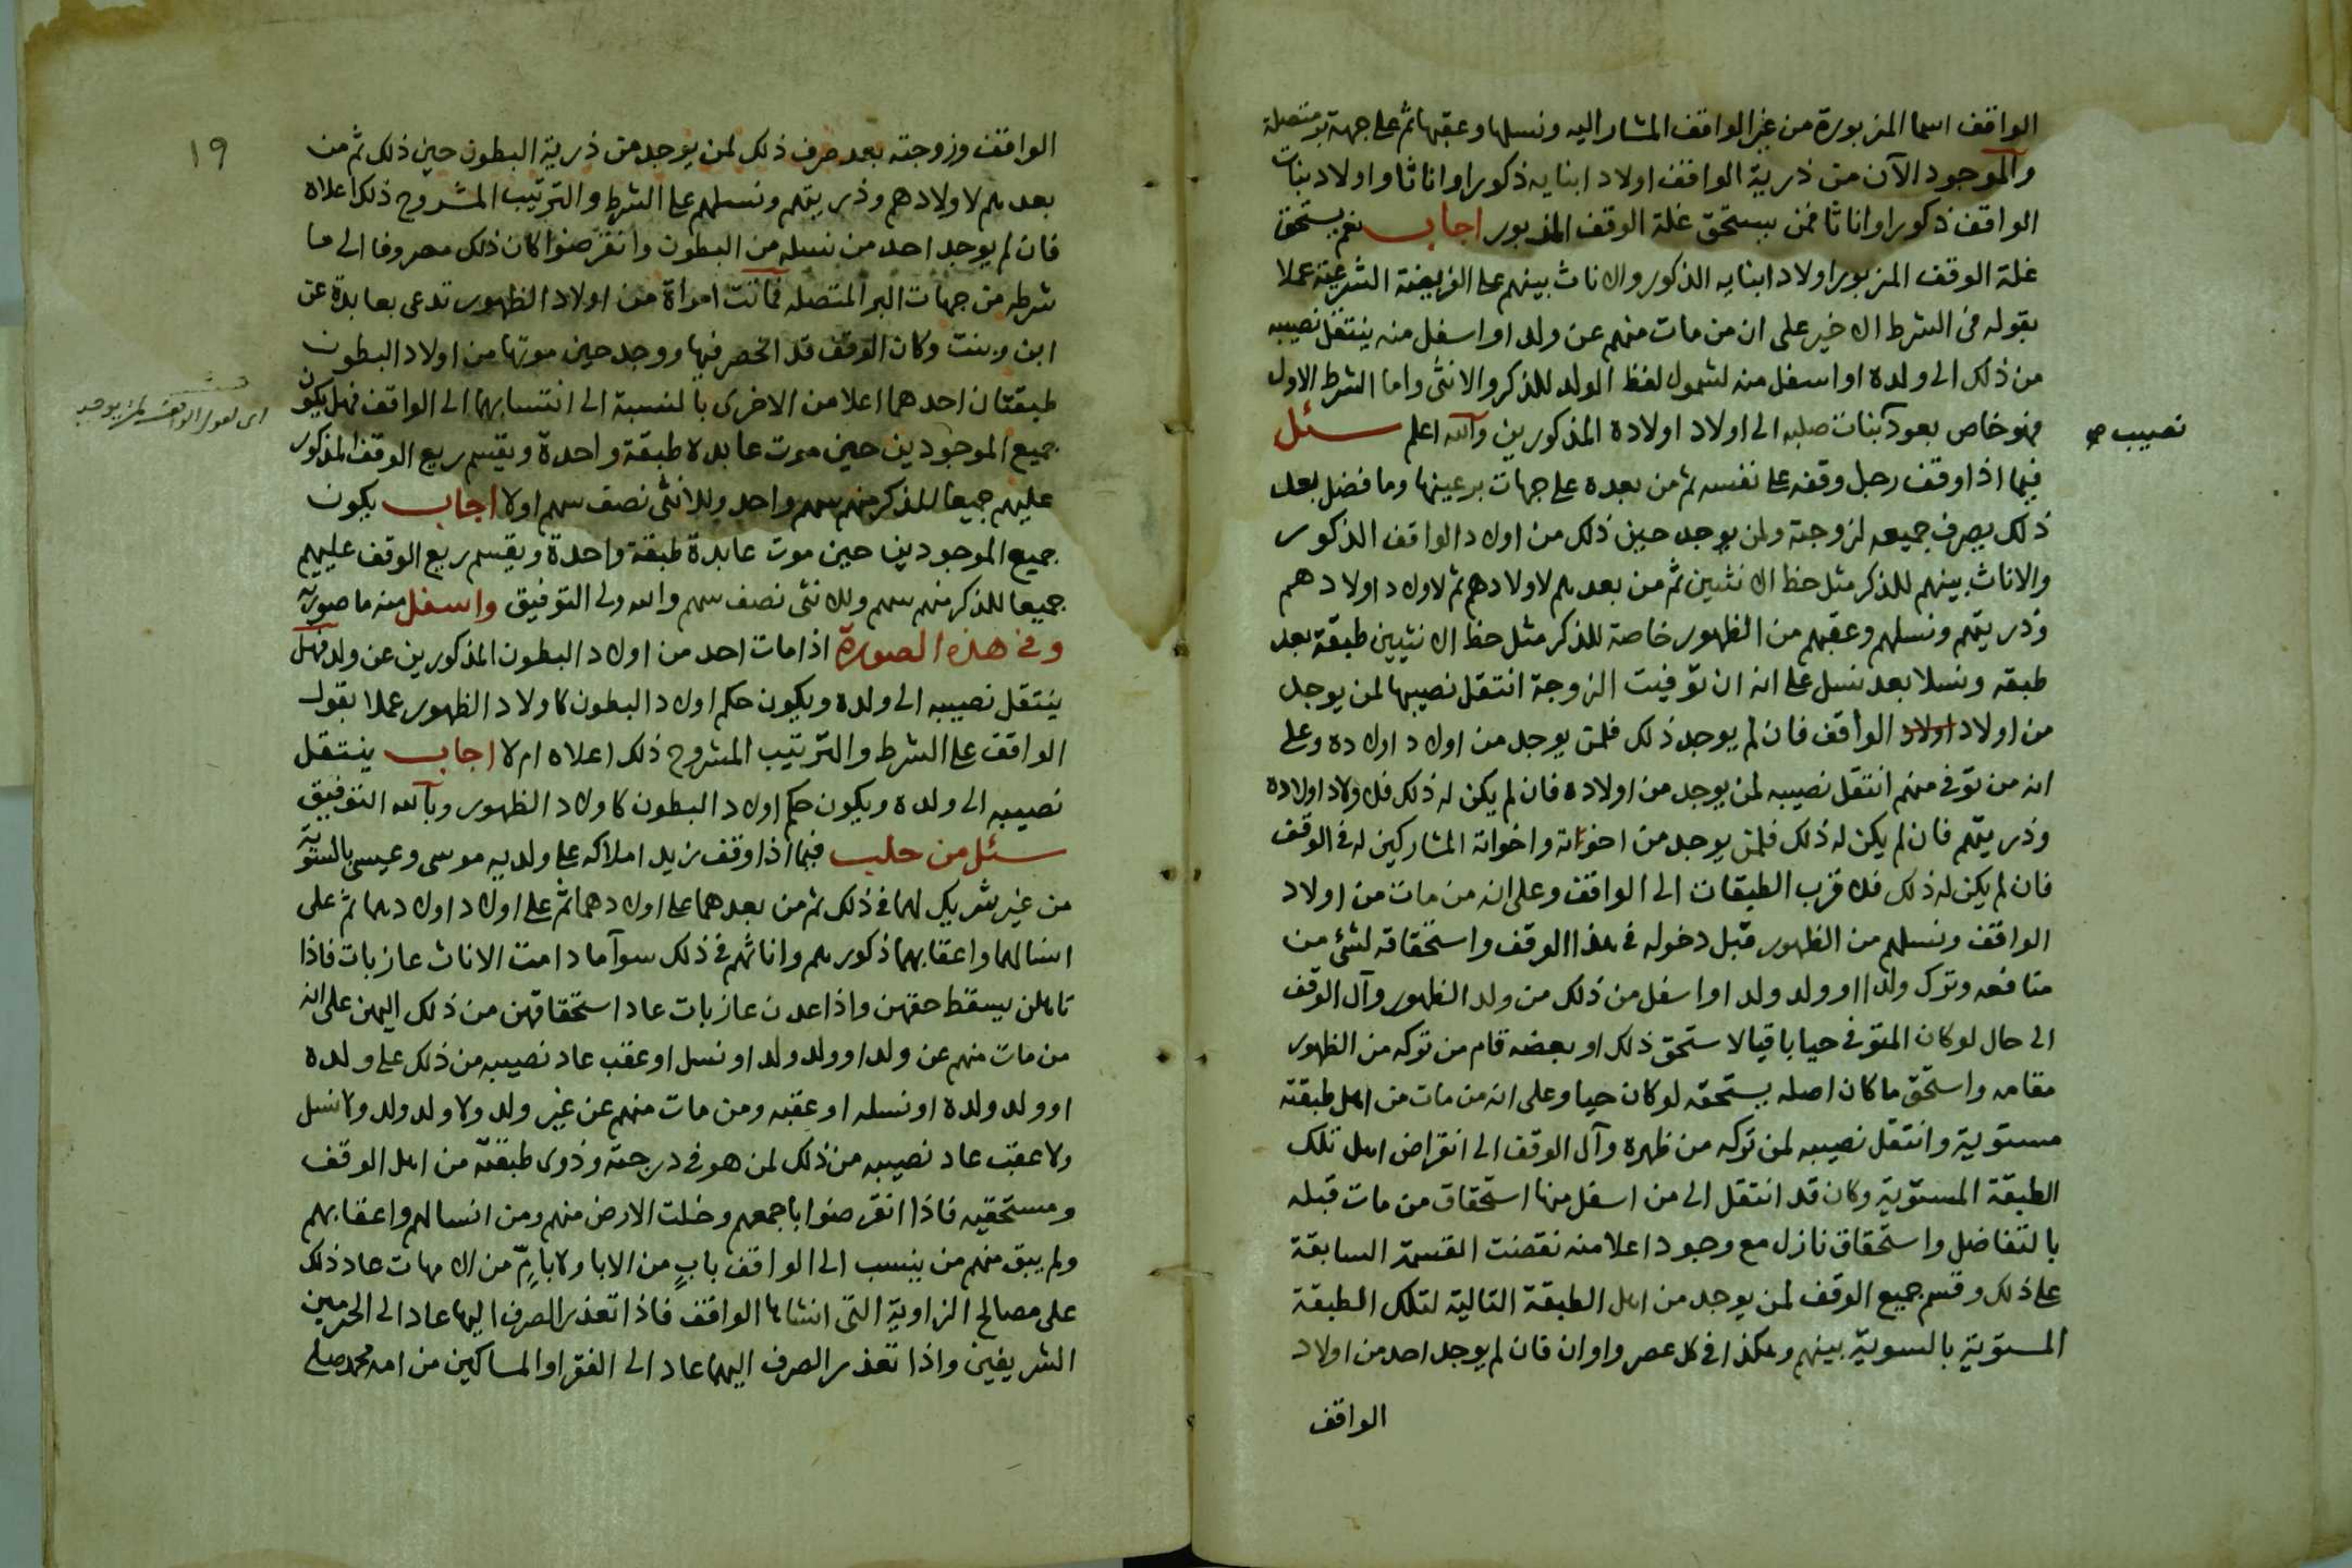 الواقف اسما المزبورة من غير الواقف المشار اليه ونسلها وعقبها ثم على جهة بر متصلة
والموجود الآن من ذرية الواقف اولاد ابنايه ذكورا واناثا واولاد بنات
الواقف ذكورا واناثا فمن يستحق غلة الوقف المذبور اجاب نعم يستحق
غلة الوقف المزبور اولاد ابنايه الذكور والاناث بينهم على الفريضة الشرعية عملا
بقوله فى الشرط الاخير على ان من مات منهم عن ولد او اسفل منه ينتقل نصيبه
من ذلك الى ولده او اسفل منه لشمول لفظ الولد للذكر والانثى واما الشرط الاول
فهو خاص بعود بنات صلبه الى اولاد اولاده المذكورين والله اعلم سئل
نصيب صح
فيما اذا وقف رجل وقفه على نفسه ثم من بعده على جهات بر عينها وما فضل بعد
ذلك يصرف جميعه لزوجته ولمن يوجد حين ذلك من اولاد الواقف الذكور
والاناث بينهم للذكر مثل حظ الانثيين ثم من بعدهم لاولادهم ثم لاولاد اولادهم
وذريتهم ونسلهم وعقبهم من الظهور خاصة للذكر مثل حظ الانثيين طبقة بعد
طبقه ونسلا بعد نسل على انه ان توفيت الزوجة انتقل نصيبها لمن يوجد
من اولاد اولاد الواقف فان لم يوجد ذلك فلمن يوجد من اولاد اولاده وعلى
انه من توفى منهم انتقل نصيبه لمن يوجد من اولاده فان لم يكن له ذلك فلاولاد اولاده
وذريتهم فان لم يكن له ذلك فلمن يوجد من اخوته واخواته المشاركين له فى الوقف
فان لم يكن له ذلك فلاقرب الطبقات الى الواقف وعلى انه من مات من اولاد
الواقف ونسلهم من الظهور قبل دخوله فى هذا الوقف واستحقاقه لشئ من
منافعه وترك ولدا او ولد ولد او اسفل من ذلك من ولد الظهور وآل الوقف
الى حال لو كان المتوفى حيا باقيا لاستحق ذلك او بعضه قام من تركه من الظهور
مقامه واستحق ما كان اصله يستحقه لو كان حيا وعلى انه من مات من اهل طبقته
مستوية وانتقل نصيبه لمن تركه من ظهره وآل الوقف الى انقراض اهل تلك
الطبقة المستوية وكان قد انتقل الى من اسفل منها استحقاق من مات قبله
بالتفاضل واستحقاق نازل مع وجود اعلا منه نقضت القسمة السابقة
على ذلك وقسم جميع الوقف لمن يوجد من اهل الطبقة التالية لتلك الطبقة
المستوية بالسوية بينهم وهكذا فى كل عصر واوان فان لم يوجد احد من اولاد
الواقف
١٩
الواقف وزوجته بعد صرف ذلك لمن يوجد من ذرية البطون حين ذلك ثم من
بعدهم لاولادهم وذريتهم ونسلهم على الشرط والترتيب المشروح ذلك اعلاه
فان لم يوجد احد من نسله من البطون وانقرضوا كان ذلك مصروفا الى ما
شرطه من جهات البر المتصله فماتت امراة من اولاد الظهور تدعى بعابدة عن
ابن وبنت وكان الوقف قد انحصر فيها ووجد حين موتها من اولاد البطون
طبقتان احدهما اعلا من الاخرى بالنسبة الى انتسابهما الى الواقف فهل يكون
اى لقول الواقف لمن يوجد
جميع الموجودين حين موت عابدة طبقة واحدة ويقسم ريع الوقف المذكور
عليهم جميعا للذكر منهم سهم واحد وللانثى نصف سهم او لا اجاب يكون
جميع الموجودين حين موت عابدة طبقة واحدة ويقسم ريع الوقف عليهم
جميعا للذكر منهم سهم وللانثى نصف سهم والله ولى التوفيق واسفل منه ما صورته
وفى هذه الصورة اذا مات احد من اولاد البطون المذكورين عن ولد فهل
ينتقل نصيبه الى ولده ويكون حكم اولاد البطون كاولاد الظهور عملا بقول
الواقف على الشرط والترتيب المشروح ذلك اعلاه ام لا اجاب ينتقل
نصيبه الى ولده ويكون حكم اولاد البطون كاولاد الظهور وبالله التوفيق
سئل من حلب فيما اذا وقف زيد املاكه على ولديه موسى وعيسى بالسوية
من غير شريك لهما فى ذلك ثم من بعدهما على اولادهما ثم على اولاد اولادهما ثم على
انسالهما واعقابهما ذكورهم واناثهم فى ذلك سوآ ما دامت الاناث عازبات فاذا
تاهلن يسقط حقهن واذا عدن عازبات عاد استحقاقهن من ذلك اليهن على انه
من مات منهم عن ولد او ولد ولد او نسل او عقب عاد نصيبه من ذلك على ولده
او ولد ولده او نسله او عقبه ومن مات منهم عن غير ولد ولا ولد ولد ولا نسل
ولا عقب عاد نصيبه من ذلك لمن هو فى درجته وذوى طبقته من اهل الوقف
ومستحقيه فاذا انقرضوا باجمعهم وخلت الارض منهم ومن انسالهم واعقابهم
ولم يبق منهم من ينسب الى الواقف باب من الابا ولا بام من الامهات عاد ذلك
على مصالح الزاوية التى انشاها الواقف فاذا تعذر الصرف اليها عاد الى الحرمين
الشريفين واذا تعذر الصرف اليهما عاد الى الفقرا والمساكين من امه محمد صلى